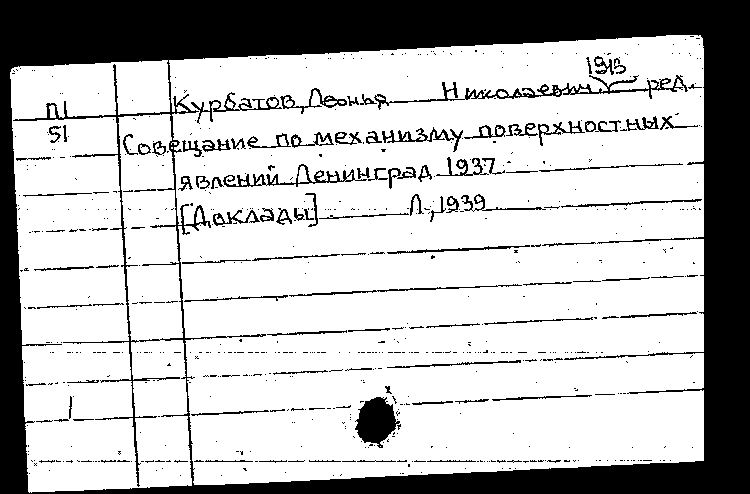 1913
П1 Курбатов, Леонид Николаевич ред.
51 Совещание по механизму поверхностных
явлений Ленинград 1937
[Доклады] Л., 1939